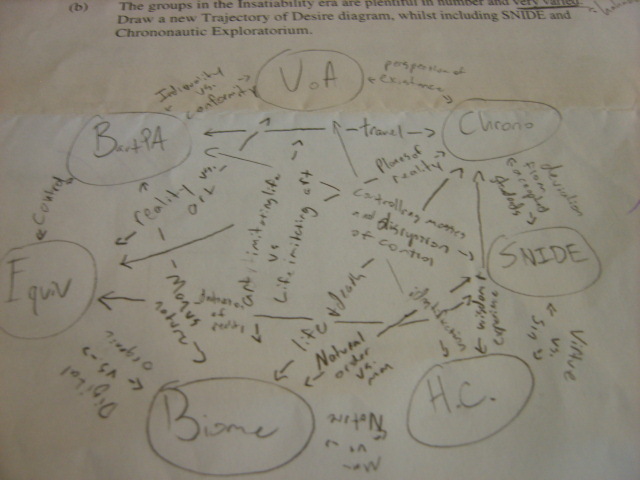 (b) The groups in the Insatiability era are plentiful in number and very varied.
Draw a new Trajectory of Desire diagram, whilst including SNIDE and
Chrononautic Exploratorium.
VoA
Individuality
vs.
conformity
perspective of
existence
BartPA
travel
Chrono
Planes of
reality
deviation
from
accepted
standards
Control
reality vs.
art
art imitating life
vs
life imitating art
controlling masses
and disruption
of control
SNIDE
Equiv
Man vs
nature
of reality
life + death
Natural
order
vs. man
wisdom +
Virtue
vs.
Sin
Digital
vs
organic
Biome
Man
vs
Nature
H.C.